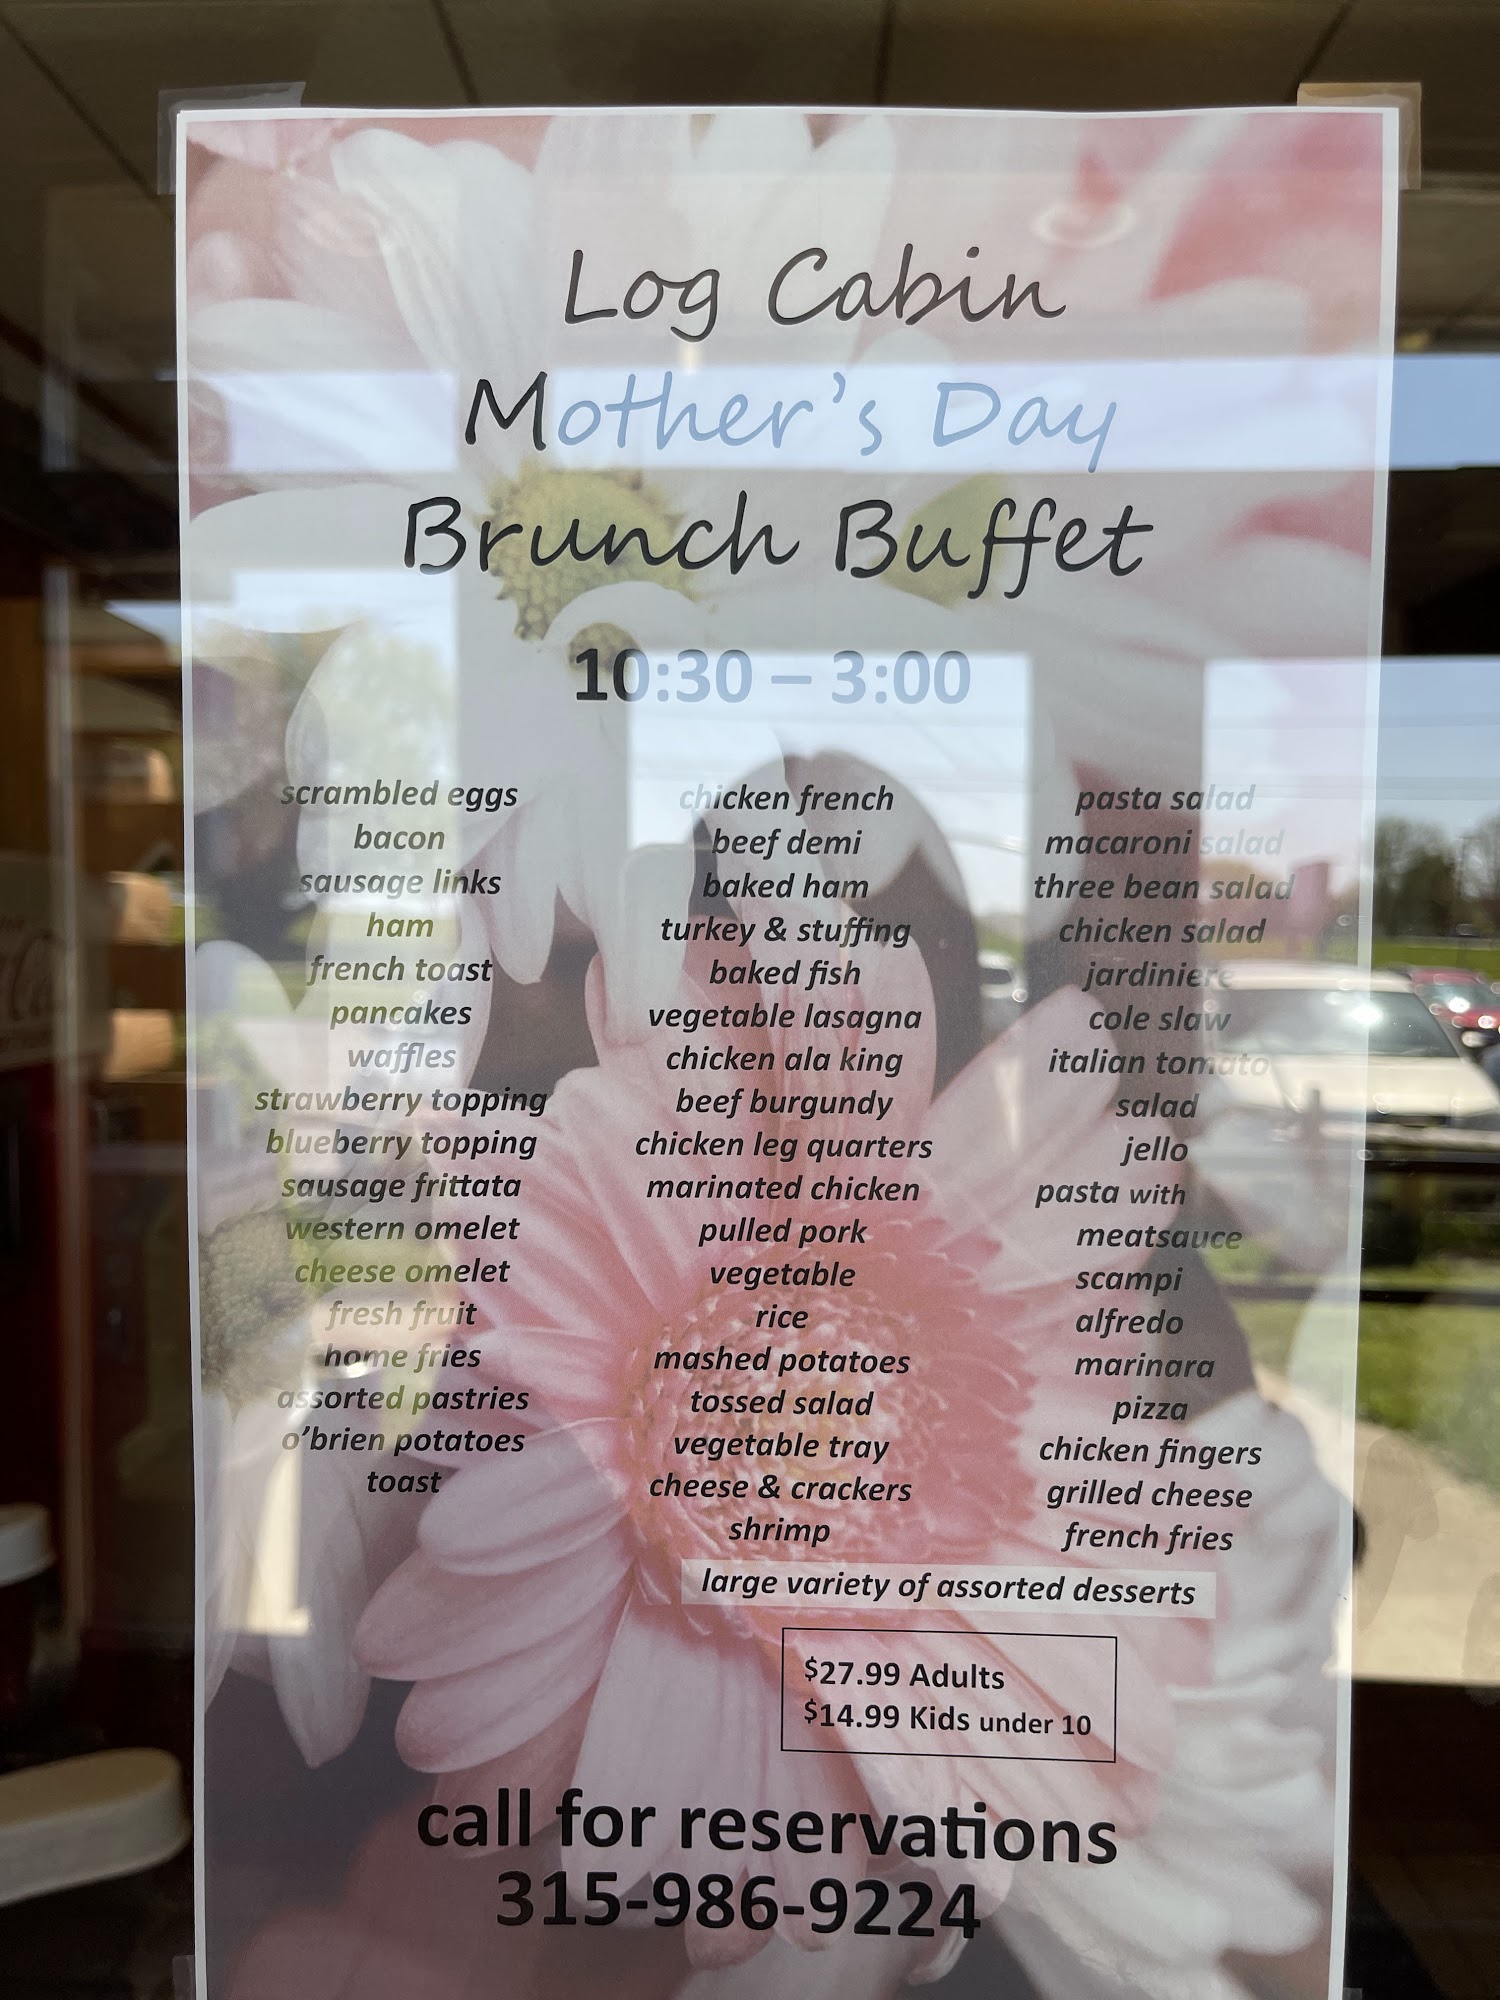 Log Cabin
Mother's Day
Brunch Buffet
10:30 – 3:00
scrambled eggs
bacon
sausage links
ham
french toast
pancakes
waffles
strawberry topping
blueberry topping
sausage frittata
western omelet
cheese omelet
fresh fruit
home fries
assorted pastries
o'brien potatoes
toast
chicken french
beef demi
baked ham
turkey & stuffing
baked fish
vegetable lasagna
chicken ala king
beef burgundy
chicken leg quarters
marinated chicken
pulled pork
vegetable
rice
mashed potatoes
tossed salad
vegetable tray
cheese & crackers
shrimp
pasta salad
macaroni salad
three bean salad
chicken salad
jardiniere
cole slaw
italian tomato
salad
jello
pasta with
meatsauce
scampi
alfredo
marinara
pizza
chicken fingers
grilled cheese
french fries
large variety of assorted desserts
$27.99 Adults
$14.99 Kids under 10
call for reservations
315-986-9224